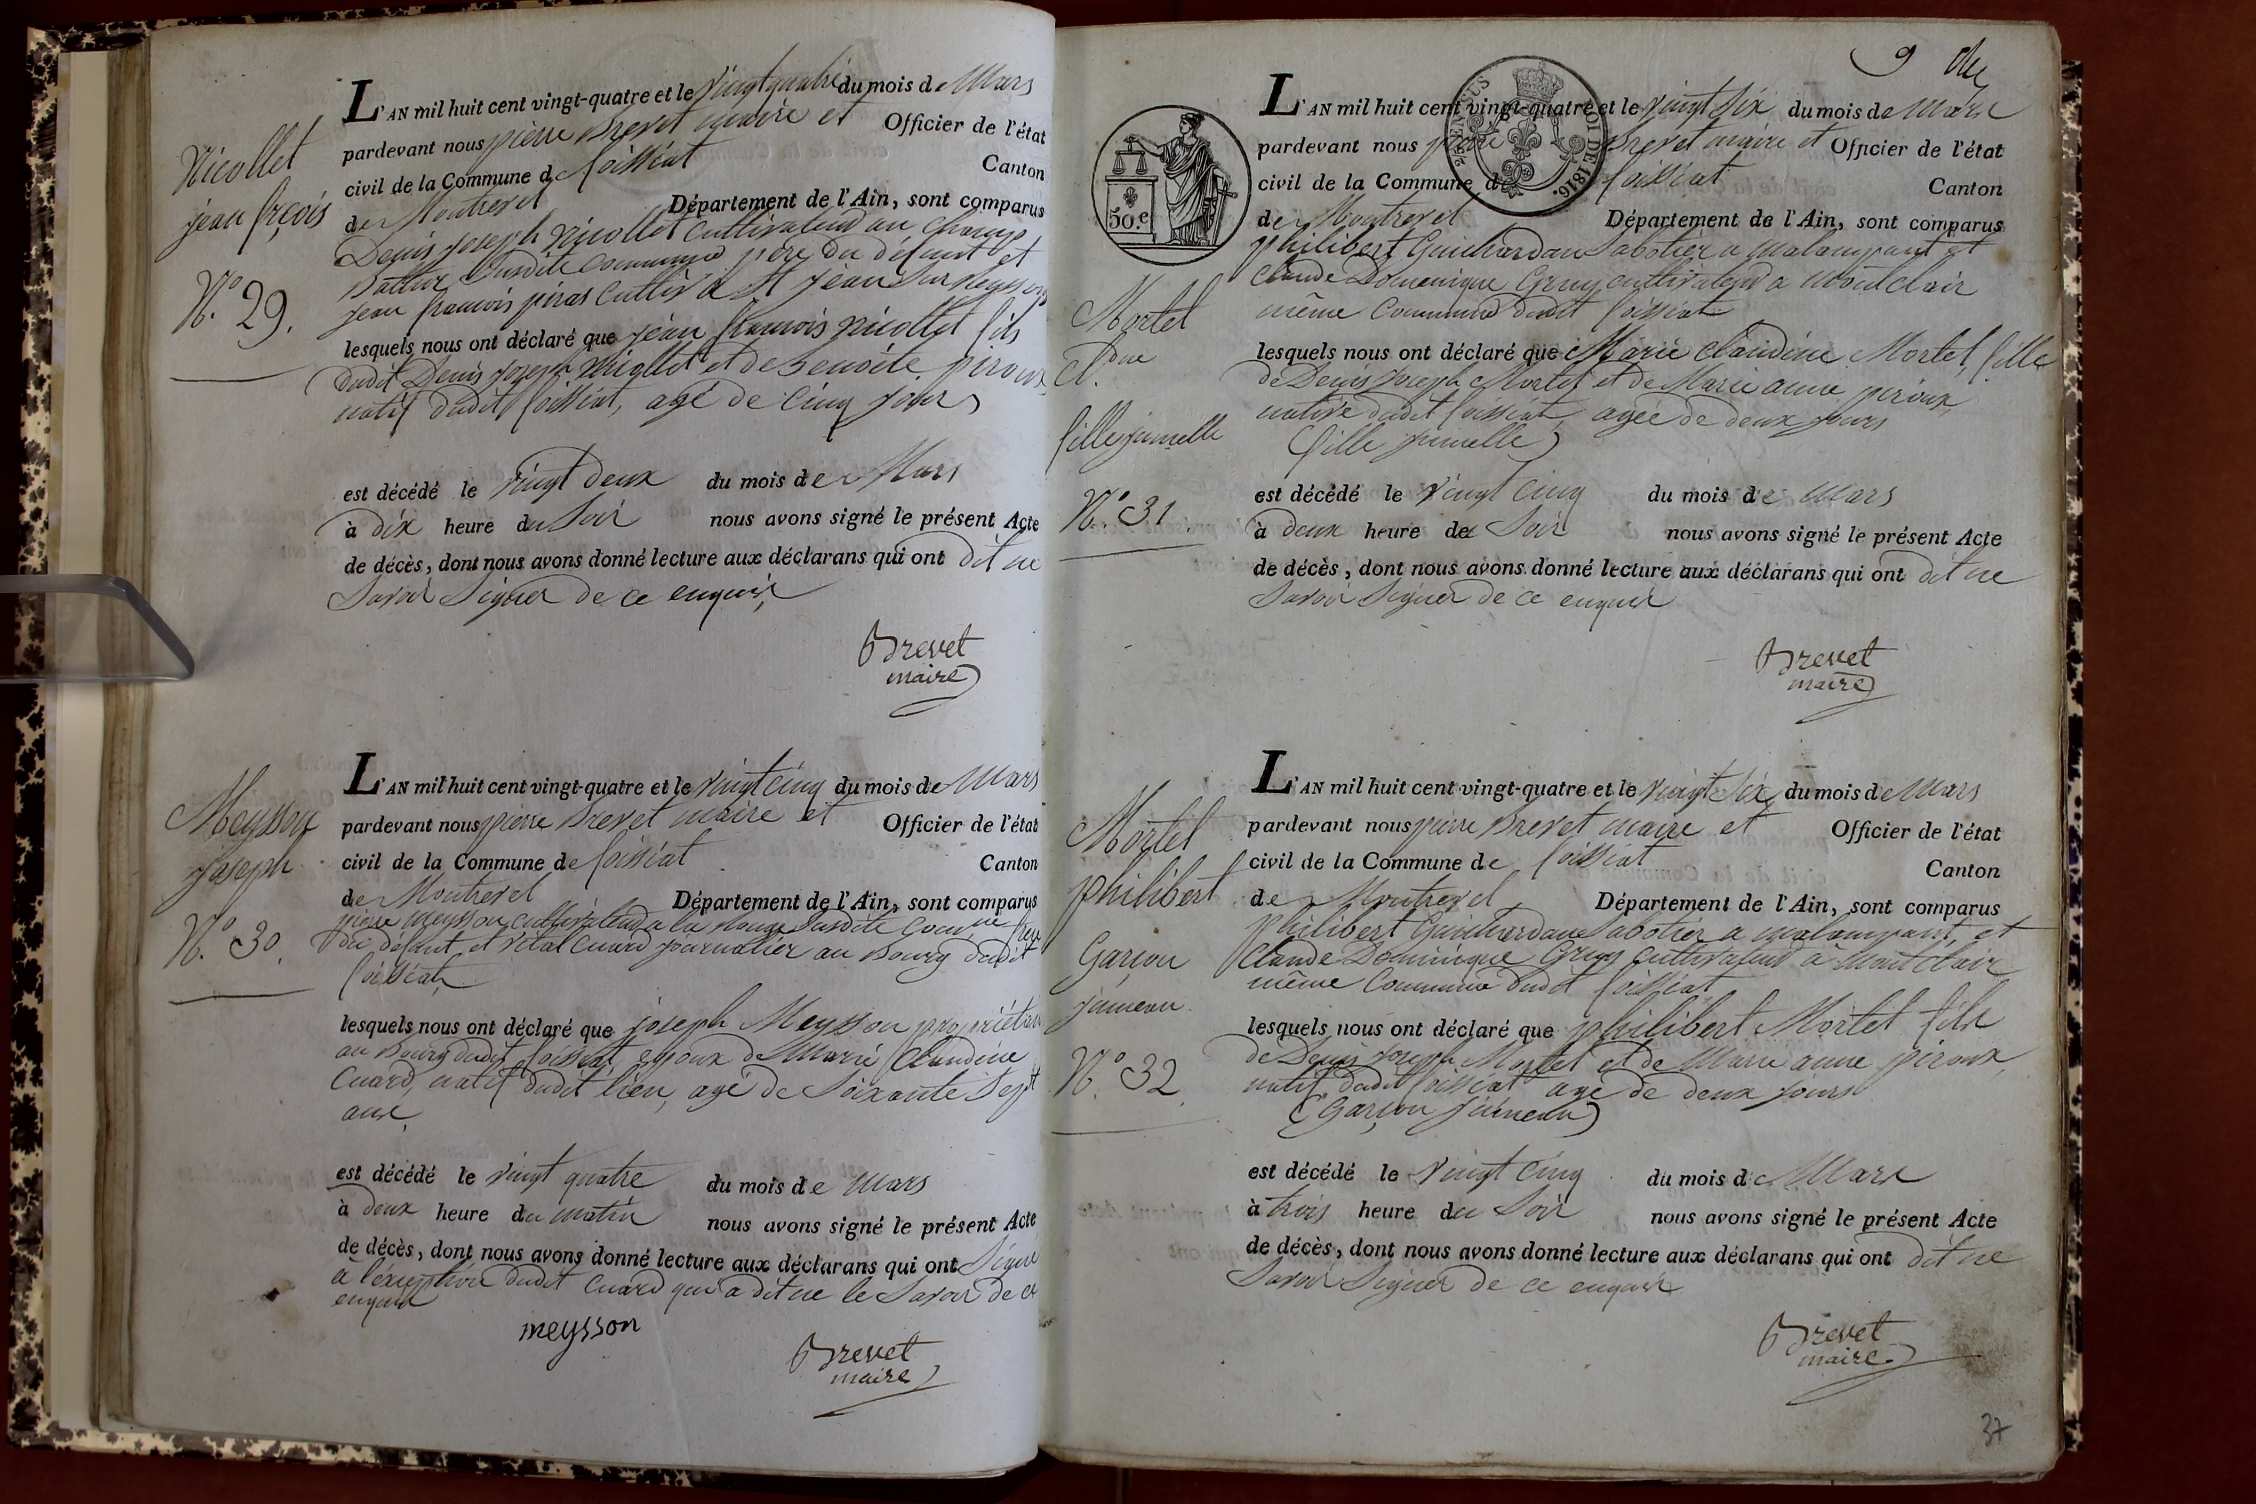 Nicollet
jean frçois
N.º 29.
L'AN mil huit cent vingt-quatre et le vingt quatre du mois de Mars
pardevant nous pierre Brevet maire et Officier de l'état
civil de la Commune de foissiat Canton
de Montrevel Département de l'Ain, sont comparus
Denis joseph Nicollet cultivateur au champ
Battur susdite commune père du défunt et
jean françois piras cultiv. à St jean sur
lesquels nous ont déclaré que jean françois nicollet fils
dudit Denis joseph nicollet et de Benoite piroux
natif dudit foissiat, agé de cinq jours
est décédé le vingt deux du mois de Mars
à dix heure du soir nous avons signé le présent Acte
de décès, dont nous avons donné lecture aux déclarans qui ont dit ne
savoir signer de ce enquis,
Brevet
maire
Meysson
joseph
N.º 30.
L'AN mil huit cent vingt-quatre et le vingt cinq du mois de Mars
pardevant nous pierre Brevet maire et Officier de l'état
civil de la Commune de foissiat Canton
de Montrevel Département de l'Ain, sont comparus
pierre meysson cultivateur à la susdite comune
du défunt et vital cuard journalier au Bourg dudit
foissiat,
lesquels nous ont déclaré que joseph Meysson propriétaire
au Bourg dudit foissiat, epoux de Marie Claudine
Cuard, natif dudit lieu, agé de soixante sept
ans,
est décédé le vingt quatre du mois de Mars
à deux heure du matin nous avons signé le présent Acte
de décès, dont nous avons donné lecture aux déclarans qui ont signé
à l'exception dudit cuard qui a dit ne le savoir de ce
enquis
meysson
Brevet
maire
9
50.c
LOI DE 1816.
Mortel
Cl.dne
fille jumelle
N.º 31.
L'AN mil huit cent vingt-quatre et le vingt six du mois de Mars
pardevant nous pierre Brevet maire et Officier de l'état
civil de la Commune de foissiat Canton
de Montrevel Département de l'Ain, sont comparus
philibert Guichardan sabotier a malompant et
Claude Dominique Gruy cultivateur a montclair
même commune dudit foissiat
lesquels nous ont déclaré que Marie claudine Mortel, fille
de Denis joseph Mortel et de Marie anne piroux,
native dudit foissiat, agée de deux jours
(fille jumelle)
est décédé le vingt cinq du mois de Mars
à deux heure de soir nous avons signé le présent Acte
de décès, dont nous avons donné lecture aux déclarans qui ont dit ne
savoir signer de ce enquis
Brevet
maire
Mortel
philibert
Garçon
jumeau
N.º 32.
L'AN mil huit cent vingt-quatre et le vingt six du mois de Mars
pardevant nous pierre Brevet maire et Officier de l'état
civil de la Commune de foissiat Canton
de Montrevel Département de l'Ain, sont comparus
philibert Guichardan sabotier a malompant, et
Claude Dominique Gruy cultivateur à Montclair
même commune dudit foissiat,
lesquels nous ont déclaré que philibert Mortel fils
de Denis joseph Mortel et de Marie anne piroux,
natif dudit foissiat agé de deux jours
(Garçon jumeau)
est décédé le vingt cinq du mois de Mars
à trois heure du soir nous avons signé le présent Acte
de décès, dont nous avons donné lecture aux déclarans qui ont dit ne
savoir signer de ce enquis
Brevet
maire
37